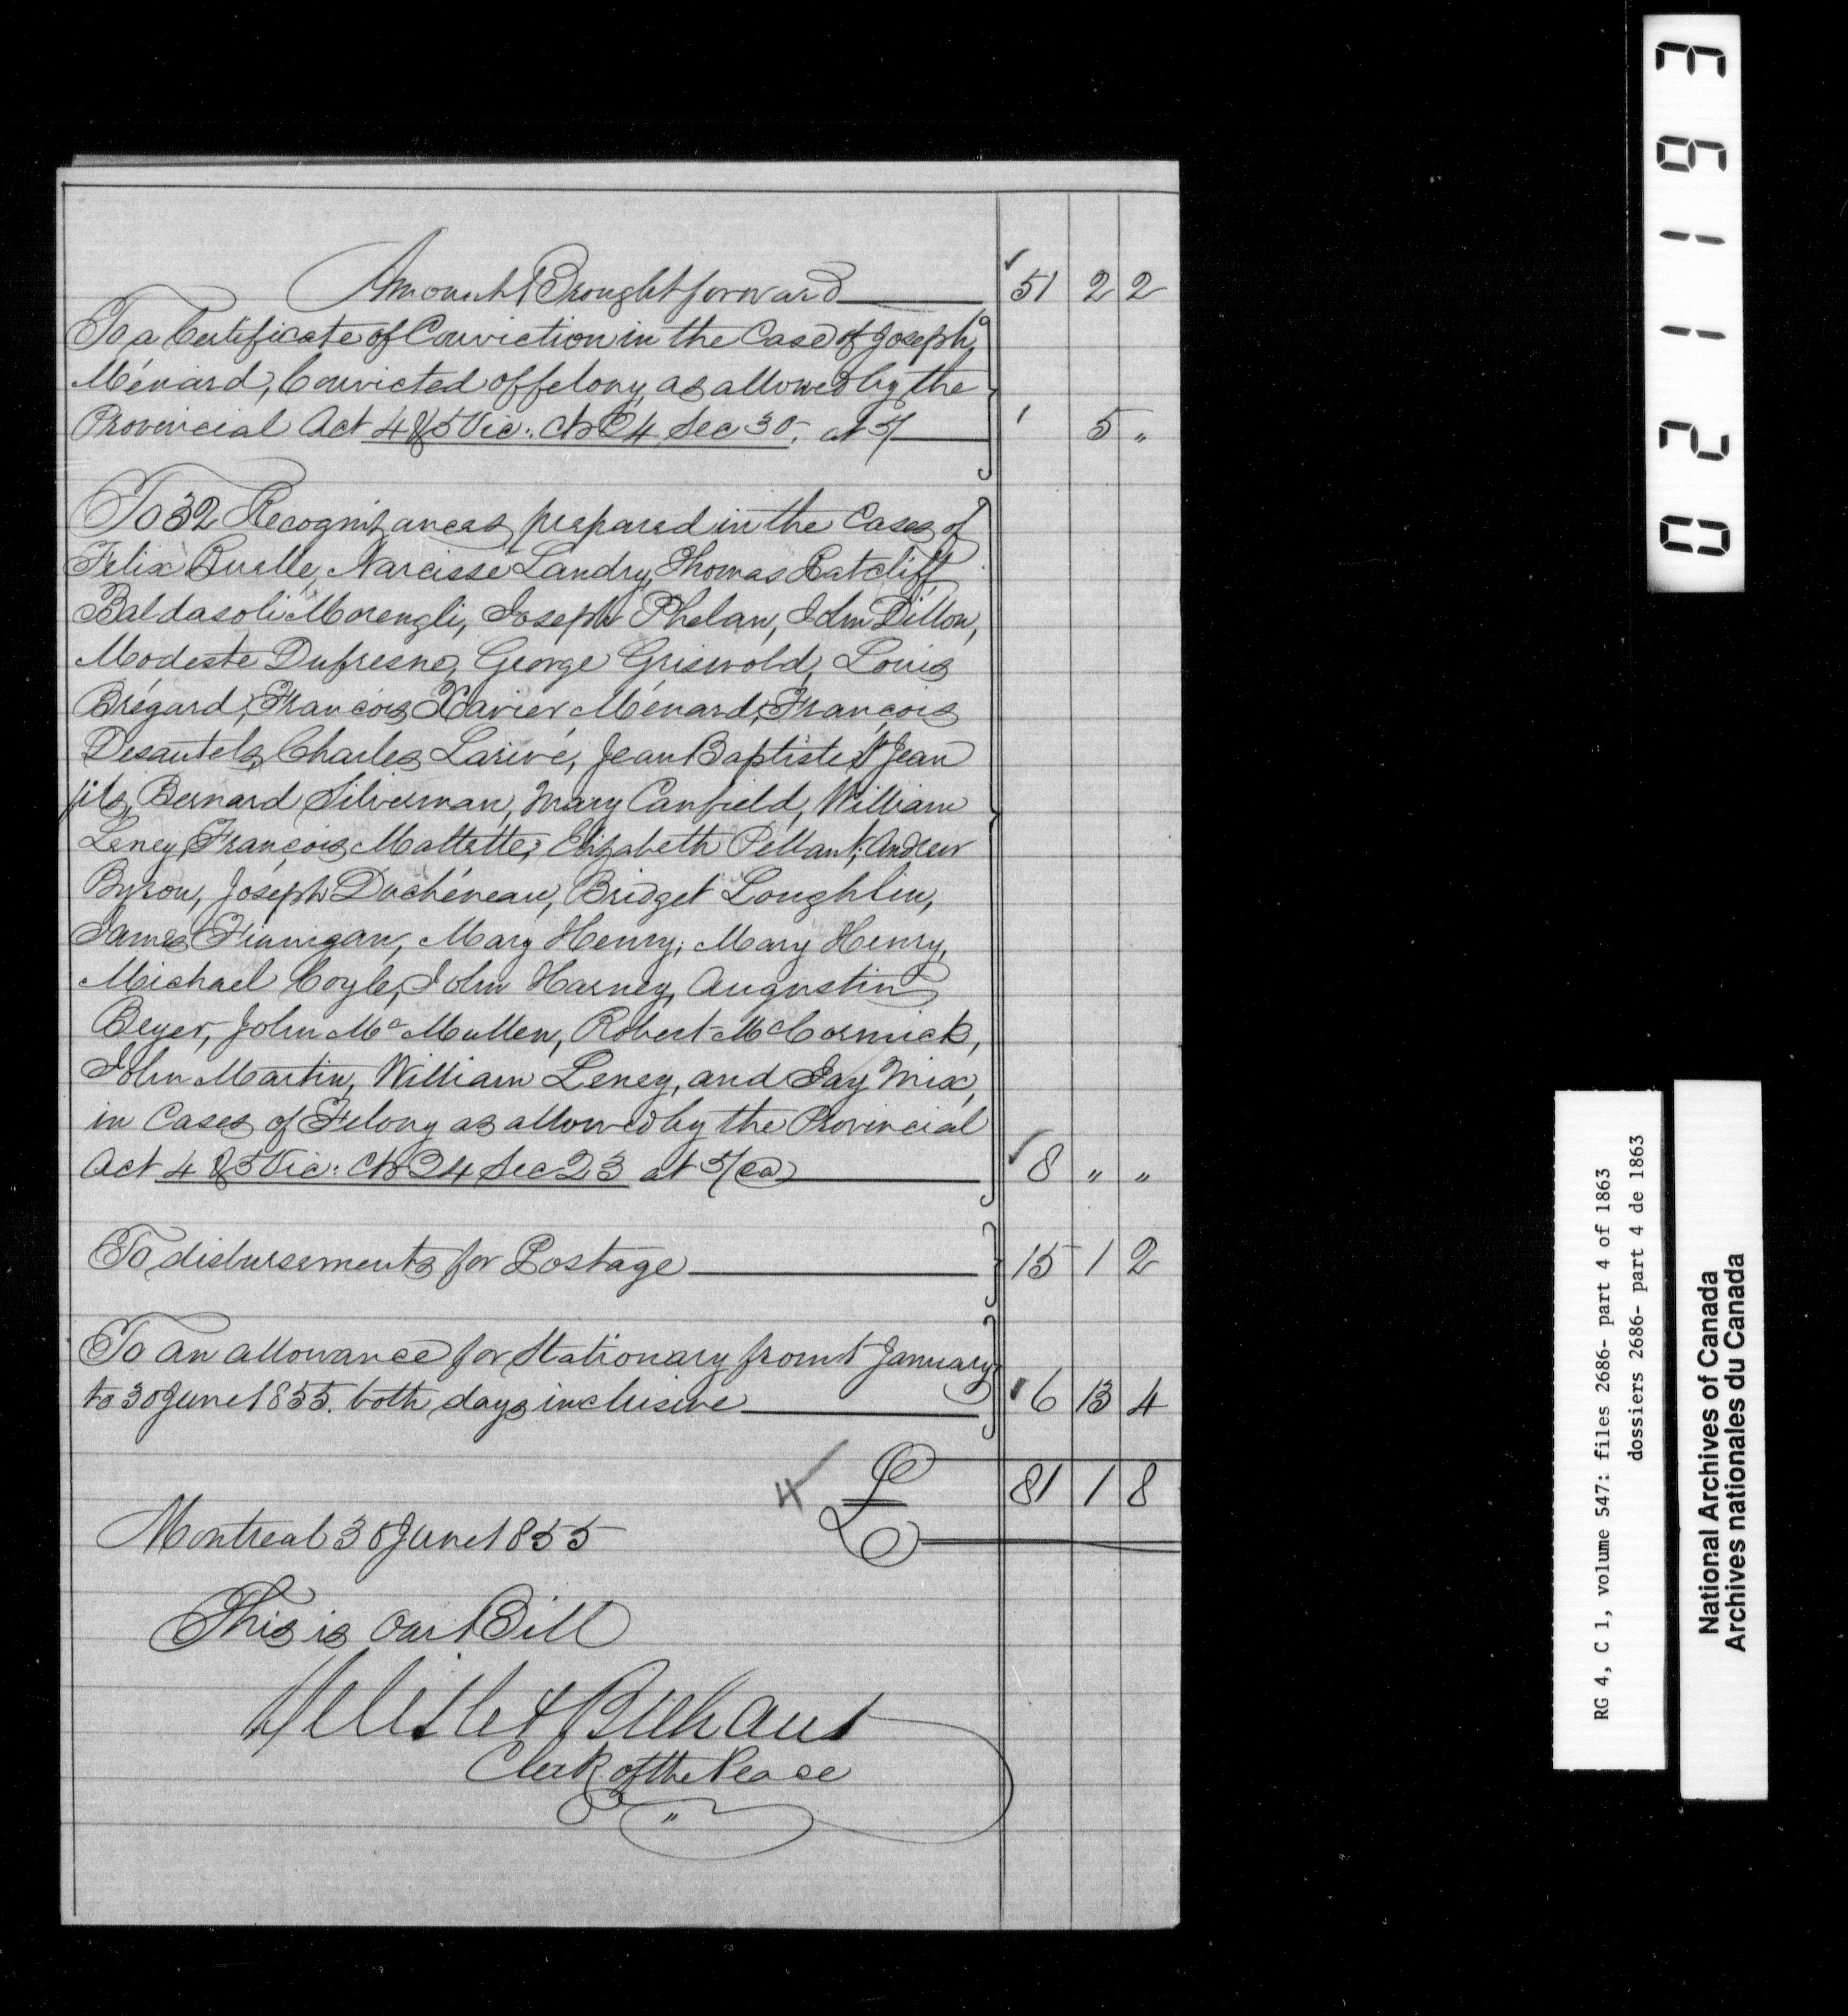 Amount Brought forward 51 2 2
To a Certificate of Conviction in the Case of Joseph
Ménard, Convicted of felony, as allowed by the
Provincial Act 4 & 5 Vic: Ch 24 Sec 30, at 5/ 5 "
To 32 Recognizances prepared in the Cases of
Felix Ruelle, Narcisse Landry, Thomas Ratcliff
Baldasoli Morengli, Joseph Phelan, John Dillon,
Modeste Dufresne, George Griswold, Louis
Brégard, François Xavier Ménard, François
Desautels, Charles Larivé, Jean Baptiste St Jean
fils, Bernard Silverman, Mary Canfield, William
Leney, François Mattette, Elizabeth Pellant, Andrew
Byron, Joseph Duchéneau, Bridget Loughlin,
James Finnigan, Mary Henry, Mary Henry,
Michael Coyle, John Harney, Augustin
Beyer, John McMullen, Robert McCormick,
John Martin, William Leney, and Jay Mix,
in Cases of Felony as allowed by the Provincial
Act 4 & 5 Vic: Ch 24 Sec 23 at 5/ ea 8 " "
To disbursements for Postage 15 1 2
To an allowance for Stationary from 1 January
to 30 June 1855. both days inclusive 6 13 4
£ 81 1 8
Montreal 30 June 1855
This is our Bill
Delisle & Brehaut
Clerk of the Peace
021193
RG 4, C 1, volume 547: files 2686- part 4 of 1863
dossiers 2686- part 4 de 1863
National Archives of Canada
Archives nationales du Canada